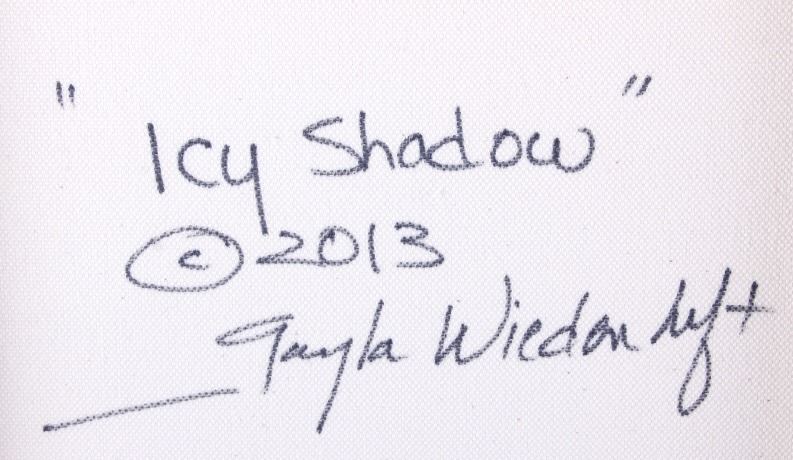 "Icy Shadow"
© 2013
Gayla Wiedenheft